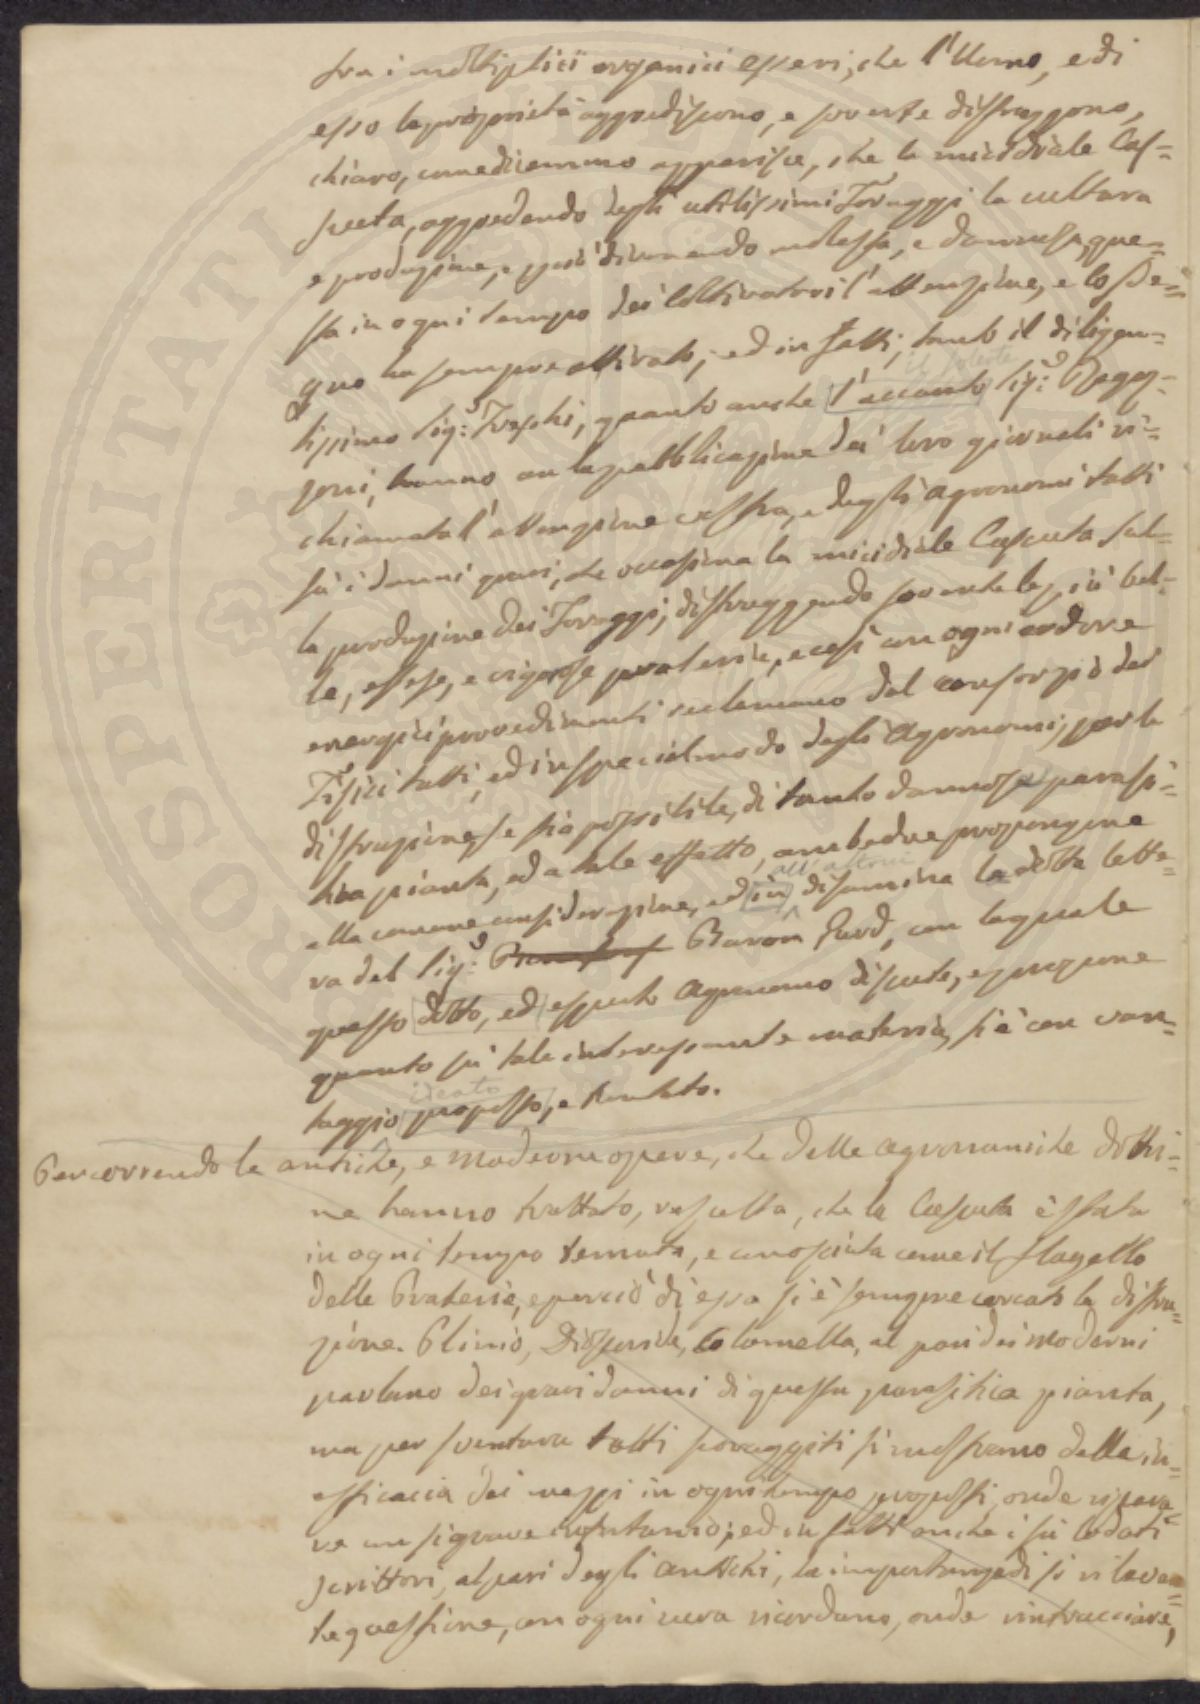 fra i moltiplici organici esseri, che l'Uomo, e di
esso la proprietà aggrediscono, e sovente distruggono,
chiaro, come dicemmo apparisce, che la micidiale Cus=
scuta, aggredendo degli utilissimi Foraggi la cultura
e produzione, e però divenendo molesta, e dannosa, que=
sta in ogni tempo dei Coltivatori l'attenzione, e lo sde=
gno ha sempre attivato; ed in fatti, tanto il diligen=
tissimo Sig:r Toschi, quanto anche l'accurato Sig:r
il solerte
zoni, hanno con la pubblicazione dei loro giornali ri=
chiamata l'attenzione vostra, e degli Agronomi tutti
sù i danni gravi, che occasiona la micidiale Cuscuta sul=
la produzione dei Foraggi, distruggendo sovente le più bel=
le, estese, e vigorose praterie, e così con ogni ardore
energici provedimenti reclamano dal consorzio dei
Fisici tutti, ed in special modo degli Agronomi, per la
distruzione, se sia possibile, di tanto dannosa parasi=
tica pianta, ed a tale effetto, ambedue propongono
alla comune considerazione, ed in disamina la dotta lette=
all'altrui
ra del Sig:r Baron, con la quale
questo dotto, ed esperto Agronomo discute, e propone
quanto sù tale interessante materia, si è con van=
taggio proposto, e tentato.
ideato
Percorrendo le antiche, e moderne opere, che delle agronomiche dottri=
ne hanno trattato, risulta, che la Cuscuta è stata
in ogni tempo temuta, e conosciuta come il flagello
delle Praterie, e perciò di essa si è sempre cercato la distru=
zione. Plinio, Dioscoride, Columella, al pari dei moderni
parlano dei gravi danni di questa parasitica pianta,
ma per sventura tutti scoraggiti si mostrano della in=
efficacia dei mezzi in ogni tempo proposti, onde ripara=
re un si grave; ed in fatti anche i sù lodati
scrittori, al pari degli antichi, la importanza di si rilevan=
te questione, con ogni cura ricordano, onde rintracciare,